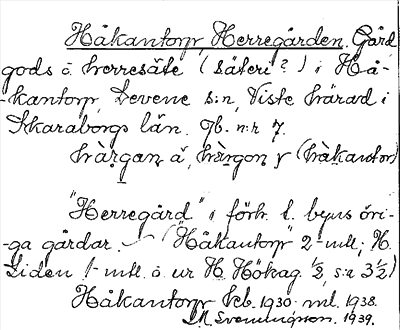 Håkantorp, Herregården. Gård
gods o. herresäte (säteri?) i Hå-
-kantorp, Levene s:n, Viste härad i
Skaraborgs län. Jb. n:r 7.
hàrgan å, hàrgon y (hàkantor)
"Herregård" i förh. t. byns övri-
-ga gårdar. ("Håkantorp" 2 mtl; H.
Liden 1 mtl. o. ur H. Hökag. 1/2, s:a 3 1/2)
Håkantorp feb. 1930. ml. 1938.
Svenningson. 1939.